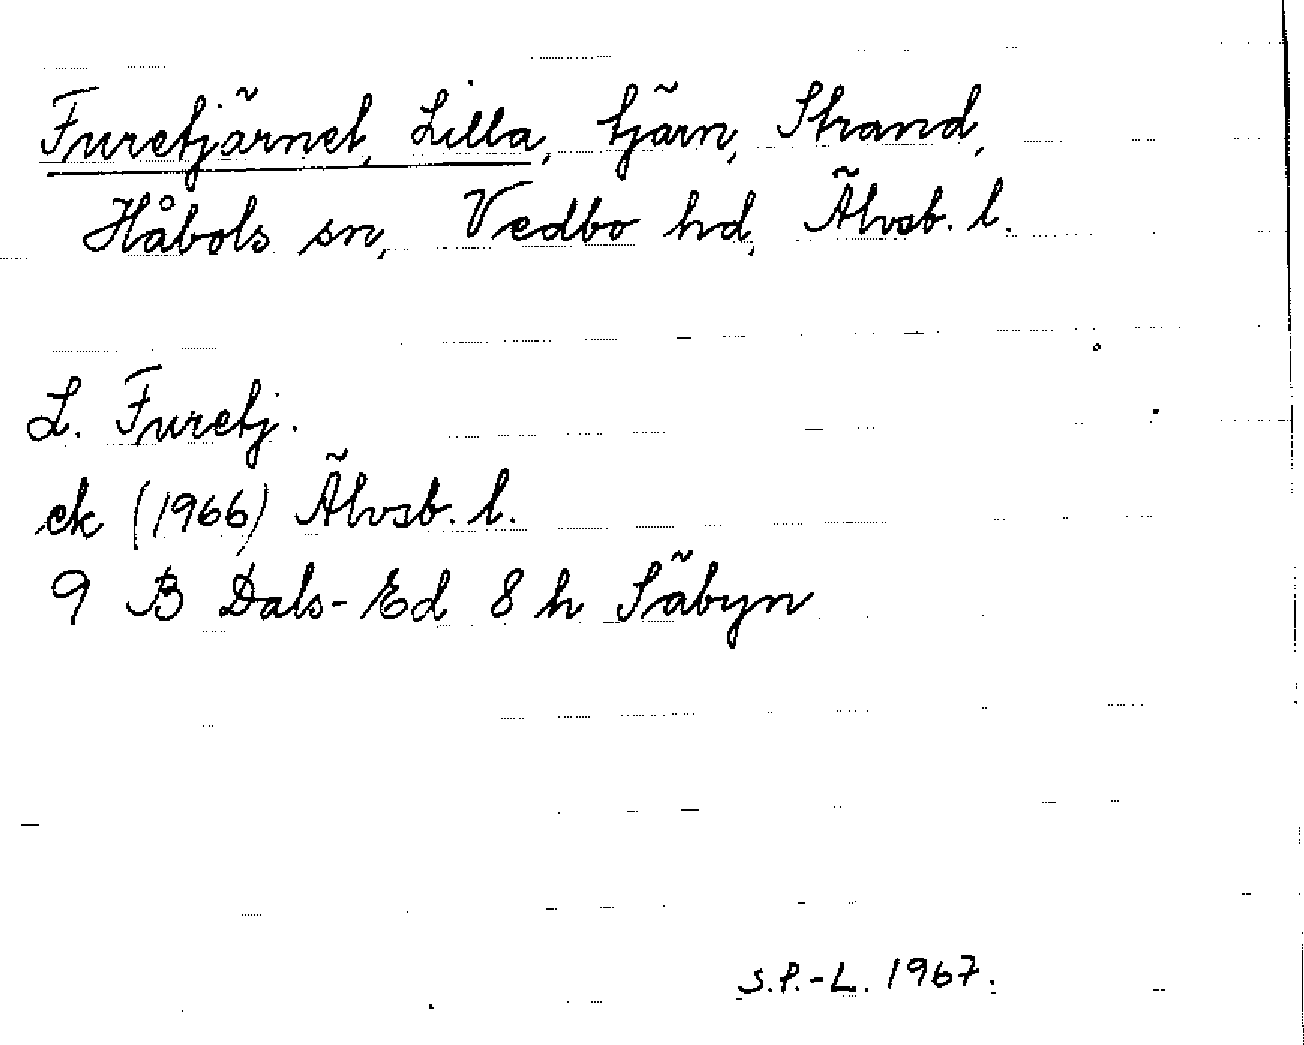 Furetjärnet, Lilla, tjärn, Strand,
Håbols sn, Vedbo hd, Älvsb. l.
L. Furetj.
ek (1966) Älvsb. l.
9 B Dals-Ed 8 h Säbyn
S.P.-L. 1967.